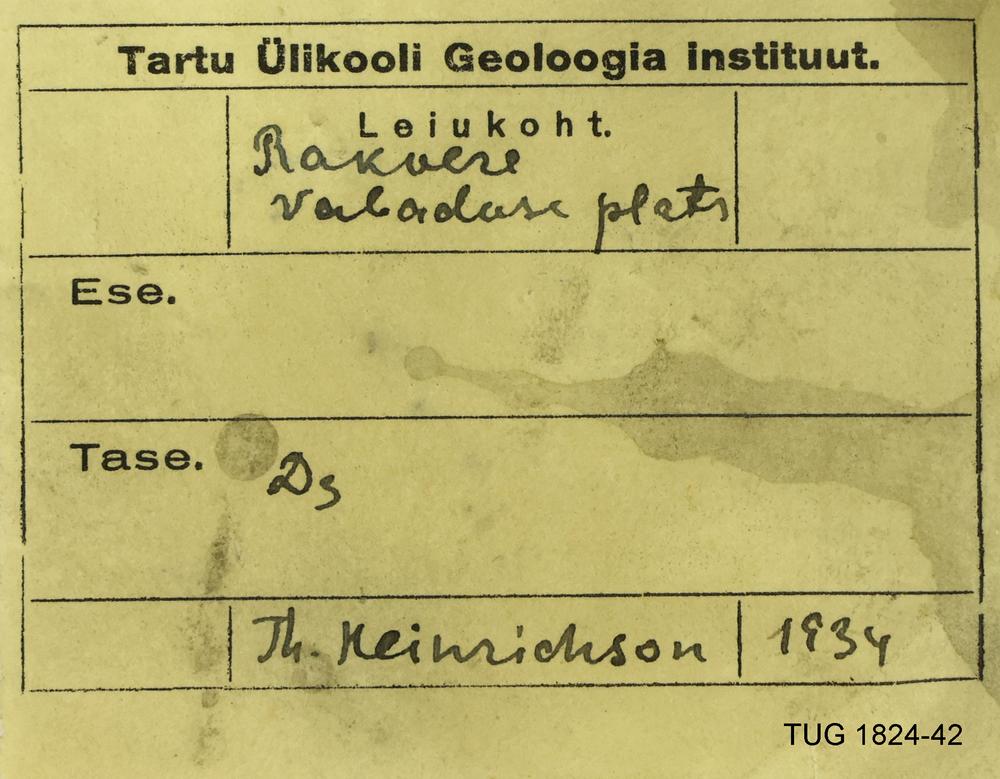 Tartu Ülikooli Geoloogia instituut.
Leiukoht.
Rakvere
Vabaduse plats
Ese.
Tase. D3
Th. Heinrichson 1934
TUG 1824-42